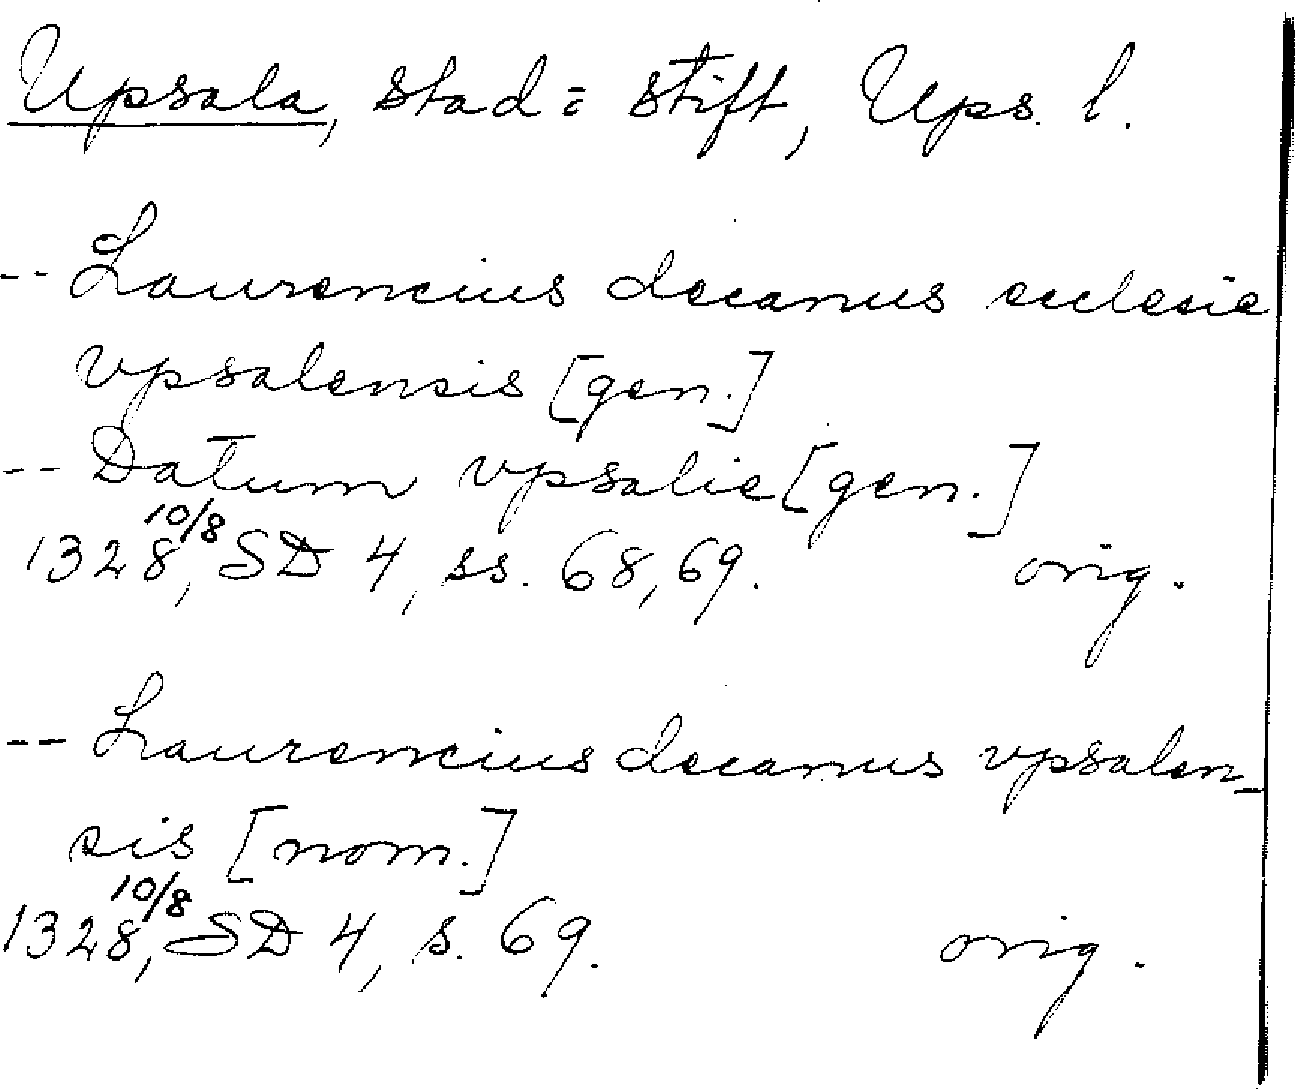 Upsala, stad = stift, Ups. l.
-- Laurencius decanus ecclesie
vpsalensis [gen.]
-- Datum vpsalie [gen.]
1328 10/8, SD 4, ss. 68, 69. orig.
-- Laurencius decanus vpsalen-
sis [nom.]
1328 10/8, SD 4, s. 69. orig.